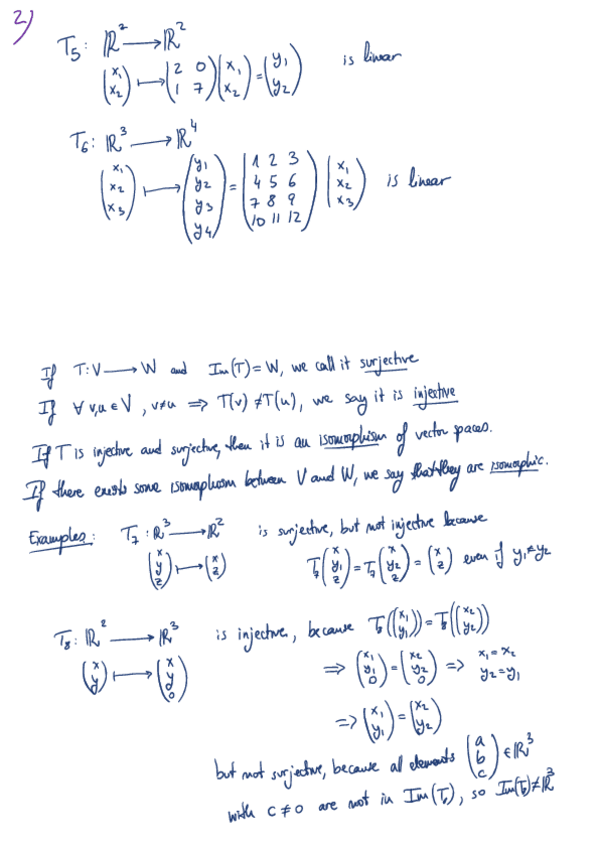 2)
T₅: ℝ² ⟶ ℝ²
(x₁ x₂) ⟼ (2 0 / 1 7)(x₁ x₂) = (y₁ y₂) is linear
T₆: ℝ³ ⟶ ℝ⁴
(x₁ x₂ x₃) ⟼ (y₁ y₂ y₃ y₄) = (1 2 3 / 4 5 6 / 7 8 9 / 10 11 12)(x₁ x₂ x₃) is linear
If T: V ⟶ W and Im(T) = W, we call it surjective
If ∀ v,u ∈ V, v≠u ⟹ T(v) ≠ T(u), we say it is injective
If T is injective and surjective, then it is an isomorphism of vector spaces.
If there exists some isomorphism between V and W, we say that they are isomorphic.
Examples: T₇: ℝ³ ⟶ ℝ² is surjective, but not injective because
(x y z) ⟼ (x z) T₇(x y₁ z) = T₇(x y₂ z) = (x z) even if y₁≠y₂
T₈: ℝ² ⟶ ℝ³ is injective, because T₈((x₁ y₁)) = T₈((x₂ y₂))
(x y) ⟼ (x y 0) ⟹ (x₁ y₁ 0) = (x₂ y₂ 0) ⟹ x₁ = x₂ y₂ = y₁
⟹ (x₁ y₁) = (x₂ y₂)
but not surjective, because all elements (a b c) ∈ ℝ³
with c ≠ 0 are not in Im(T₈), so Im(T₈) ≠ ℝ³